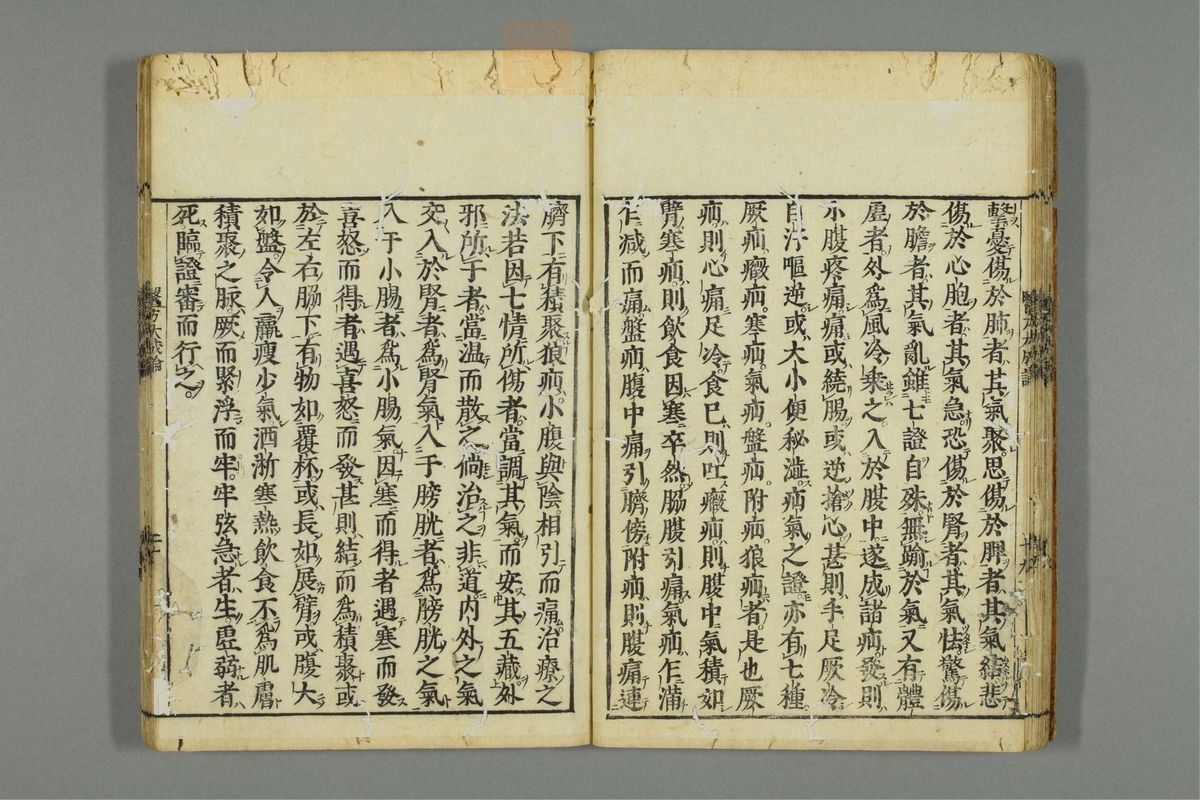 擊憂傷於肺者其氣聚思傷於脾者其氣結悲
傷於心胞者其氣急恐傷於腎者其氣怯驚傷
於膽者其氣亂雖七證自殊無踰於氣又有體
虛者外爲風冷乘之入於腹中遂成諸疝發則
小腹疼痛痛或繞腸或逆搶心甚則手足厥冷
自汗嘔逆或大小便秘澁疝氣之證亦有七種
厥疝癥疝寒疝氣疝盤疝附疝狼疝者是也厥
疝則心痛足冷食已則吐癥疝則腹中氣積如
臂寒疝則飮食因寒卒然脇腹引痛氣疝乍滿
乍減而痛盤疝腹中痛引臍傍附疝則腹痛連
臍下有積聚狼疝小腹與陰相引而痛治療之
法若因七情所傷者當調其氣而安其五藏外
邪所干者當温而散之倘治之非道内外之氣
交入於腎者爲腎氣入于膀胱者爲膀胱之氣
入于小腸者爲小腸氣因寒而得者遇寒而發
喜怒而得者遇喜怒而發甚則結而爲積聚或
於左右脇下有物如覆杯或長如展臂或腹大
如盤令人羸瘦少氣洒淅寒熱飮食不爲肌膚
積聚之脉厥而緊浮而牢牢弦急者生虛弱者
死臨證審而行之